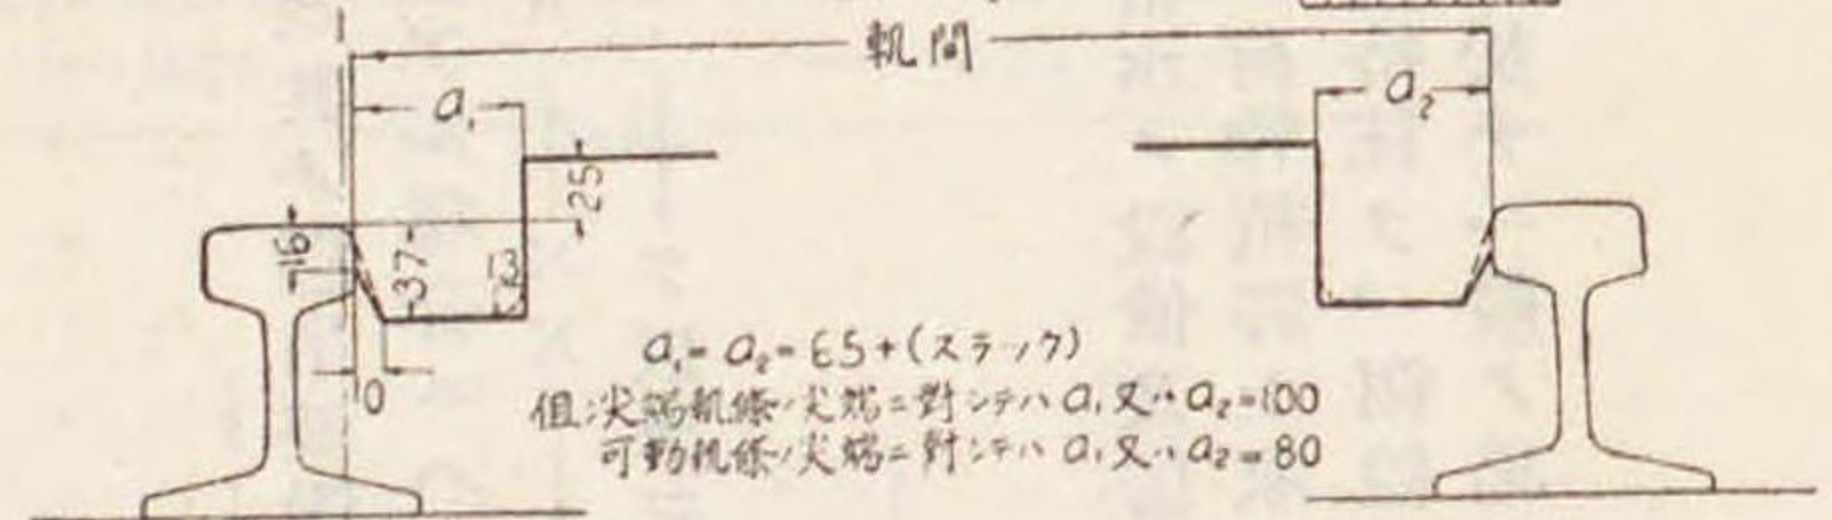 軌間
a₁
a₂
25
16
37
13
10
a₁=a₂=65+(スラック)
但シ尖端軌條ノ尖端ニ對シテハa₁又ハa₂=100
可動軌條ノ尖端ニ對シテハa₁又ハa₂=80